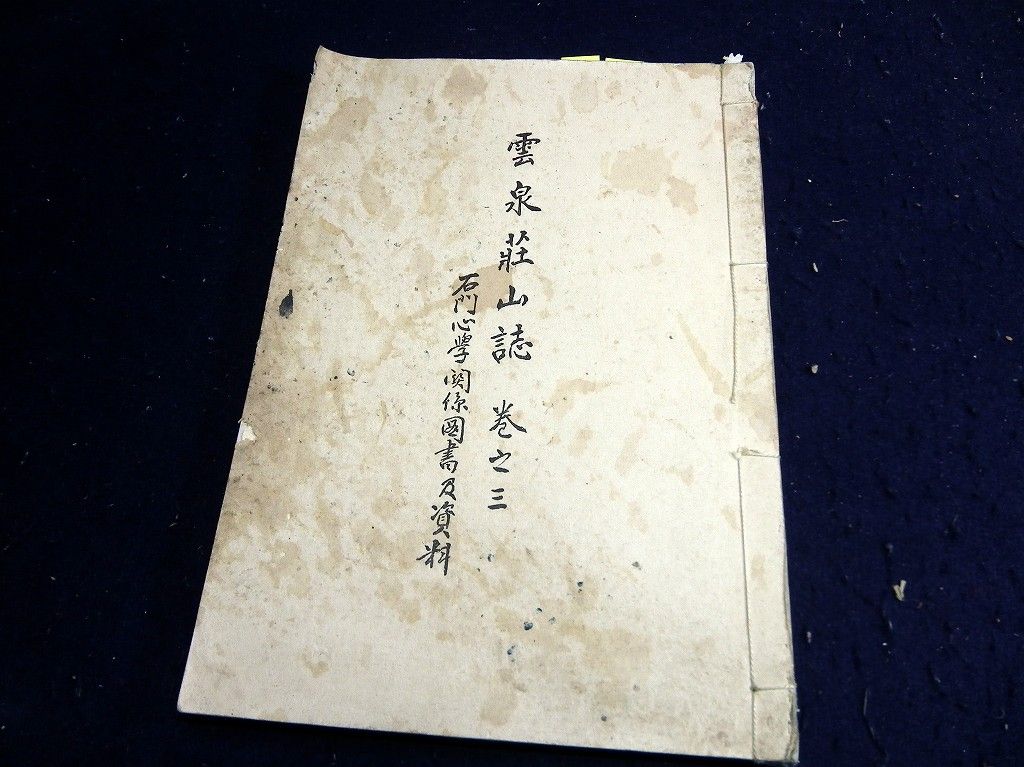 雲泉莊山誌 巻之三
石門心學関係図書及資料